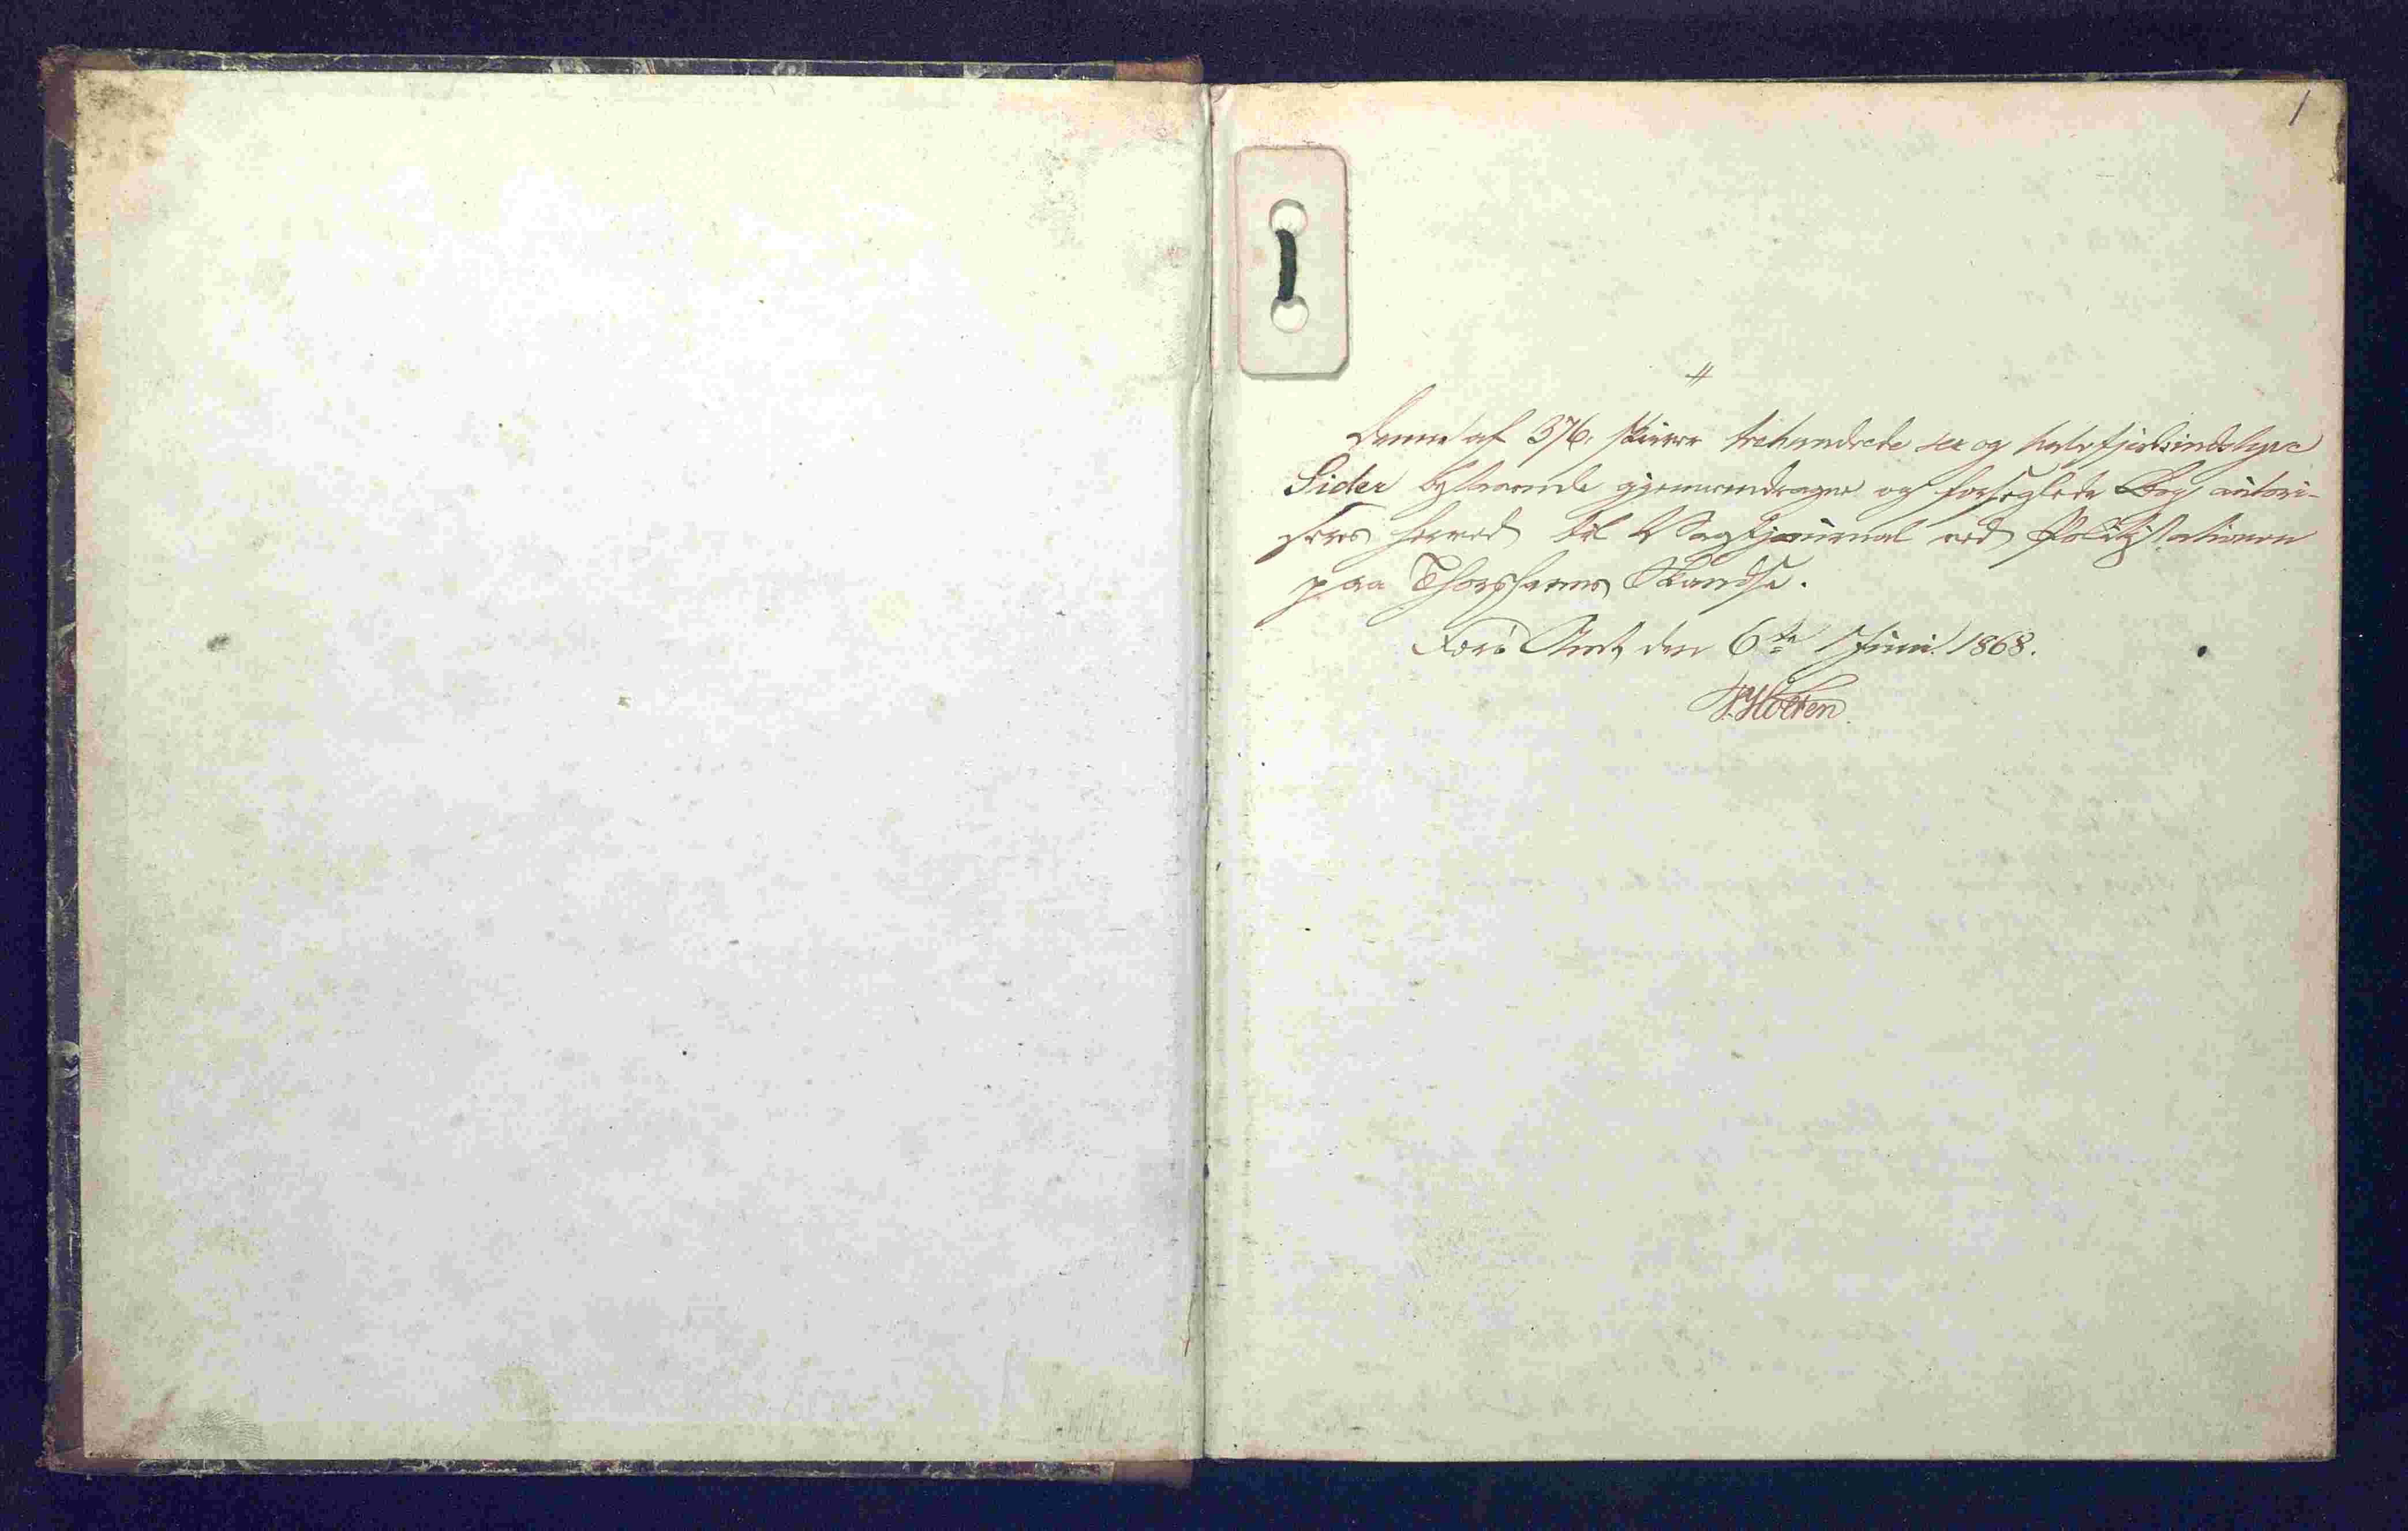 1
Denne af 376, skriver trehundrede sex og halvfjerdsindstyve
Sider bestaaende gjennemdragne og forseglede Bog autori-
seres herved til Vagtjournal ved Politistationen
paa Thorshavns Skandse.
Færø Amt, den 6te Juni 1868.